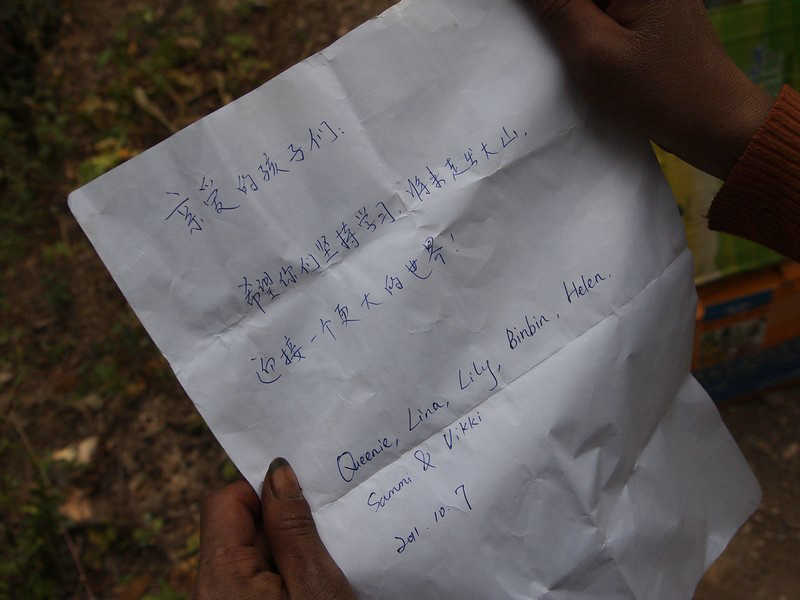 亲爱的孩子们:
希望你们坚持学习,将来走出大山,
迎接一个更大的世界!
Queenie, Lina, Lily, Binbin, Helen.
Sammi & Vikki
2011.10.7